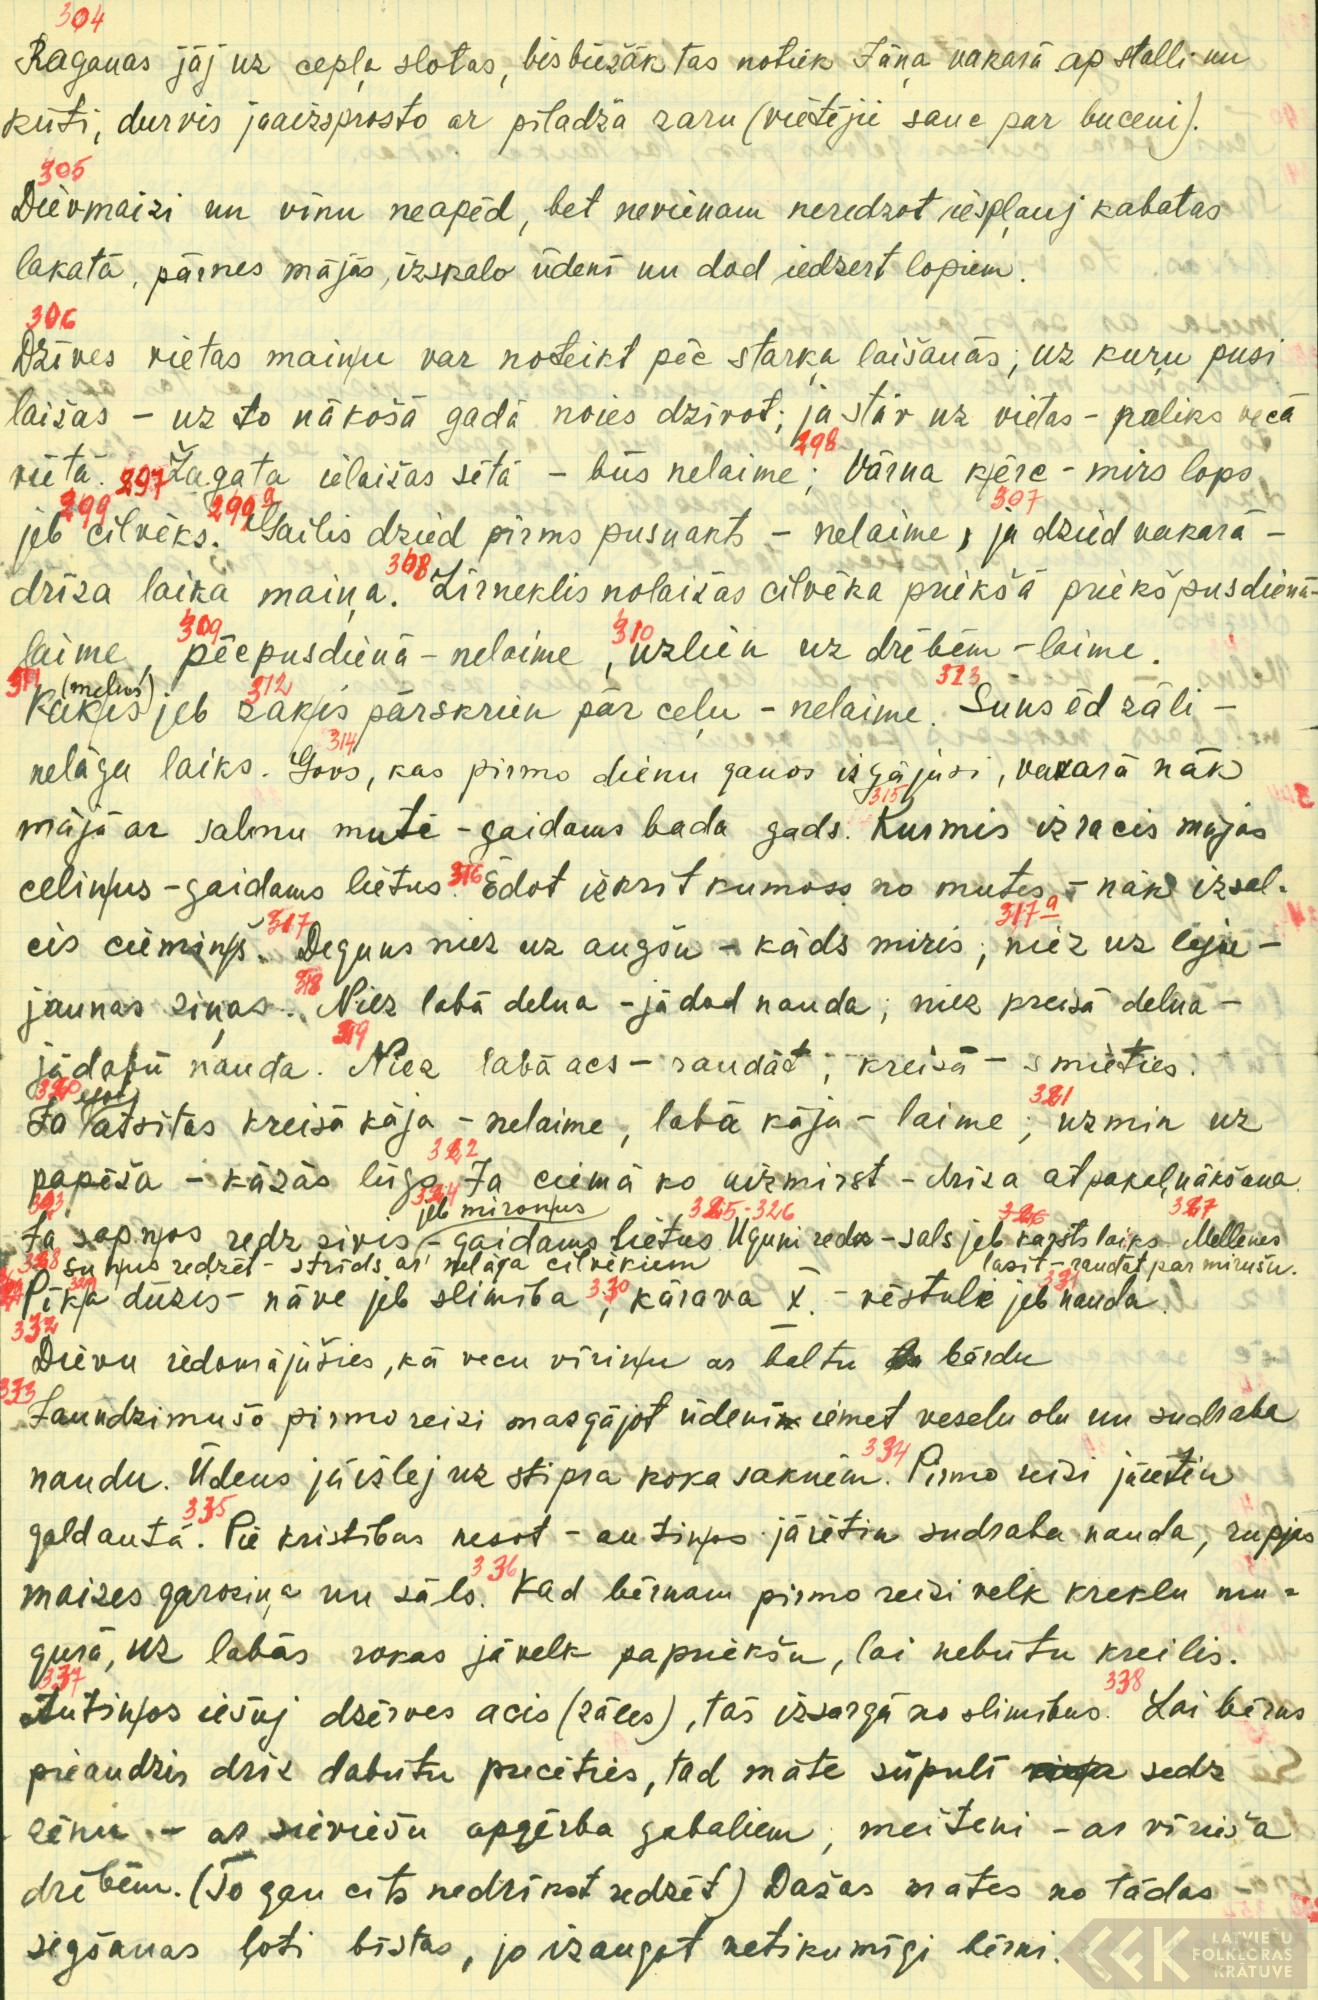 304
Raganas jāj uz cepļa slotas, bisbiežāk tas notiek Jāņa vakarā ap stalli un
kūti, durvis jāaizsprosto ar pīladža zaru (vietējie sauc par buceni).
305
Dievmaizi un vīnu neapēd, bet nevienam neredzot iespļauj kabatas
lakatā, pārnes mājās, izskalo ūdenī un dod iedzert lopiem.
306
Dzīves vietas maiņu var noteikt pēc starķa laišanās; uz kuŗu pusi
laižas – uz to nākošā gadā noies dzīvot; ja stāv uz vietas – paliks vecā
vietā. 297 Žagata ielaižas sētā – būs nelaime; 298 Vārna ķērc – mirs lops
jeb 299 cilvēks. 299a Gailis dzied pirms pusnakts – nelaime, 307 ja dzied vakarā –
drīza laika maiņa. 308 Zirneklis nolaižas cilvēka priekšā priekšpusdienā –
laime, 309 pēcpusdienā – nelaime, 310 uzlien uz drēbēm – laime.
311 Kaķis (melns) jeb 312 zaķis pārskrien pār ceļu – nelaime. 313 Suns ēd zāli –
nelāga laiks. 314 Govs, kas pirmo dienu ganos izgājusi, vakarā nāk
mājā ar salmu mutē – gaidams bada gads. 315 Kurmis izracis mājas
celiņus – gaidams lietus. 316 Ēdot izkrīt kumoss no mutes – nāk izsal-
cis ciemiņš. 317 Deguns niez uz augšu – kāds miris; 317a niez uz leju –
jaunas ziņas. 318 Niez labā delna – jādod nauda; niez kreisā delna –
jādabū nauda. 319 Niez labā acs – raudāt; kreisā – smieties.
320 Ja ejot atsitas kreisā kāja – nelaime, labā kāja – laime; 321 uzmin uz
papēža – kāzās lūgs. 322 Ja ciemā ko aizmirst – drīza atpakaļnākšana.
323 Ja sapņos redz zivis 324 jeb miroņus – gaidams lietus. 325-326 Uguni redz – sals jeb karsts laiks. 327 Mellenes
lasīt – raudāt par mirušu.
328 suņus redzēt – strīds ar nelāga cilvēkiem
329 Pīķa dūzis – nāve jeb slimība, 330 kārava X. – vēstule jeb 331 nauda.
332
Dievu iedomājušies, kā vecu vīriņu ar baltu bārdu
333
Jaundzimušo pirmo reizi mazgājot ūdenī iemet veselu olu un sudraba
naudu. Ūdens jāizlej uz stipra koka saknēm. 334 Pirmo reizi jāietin
galdautā. 335 Pie kristības nesot – autiņos jāietin sudraba nauda, rupjas
maizes garoziņa un sāls. 336 Kad bērnam pirmo reizi velk kreklu mu-
gurā, uz labās rokas jāvelk papriekšu, lai nebūtu kreilis.
337
Autiņos iešuj dzērves acis (zāles), tās izsargā no slimības. 338 Lai bērns
pieaudzis drīz dabūtu precēties, tad māte šūpulī sedz
zēnu – ar sieviešu apģērba gabaliem, meiteni – ar vīrieša
drēbēm. (To gan cits nedrīkst redzēt) Dažas mātes no tādas –
segšanas ļoti bīstas, jo izaugot netikumīgi bērni.
LATVIEŠU
FOLKLORAS
KRĀTUVE